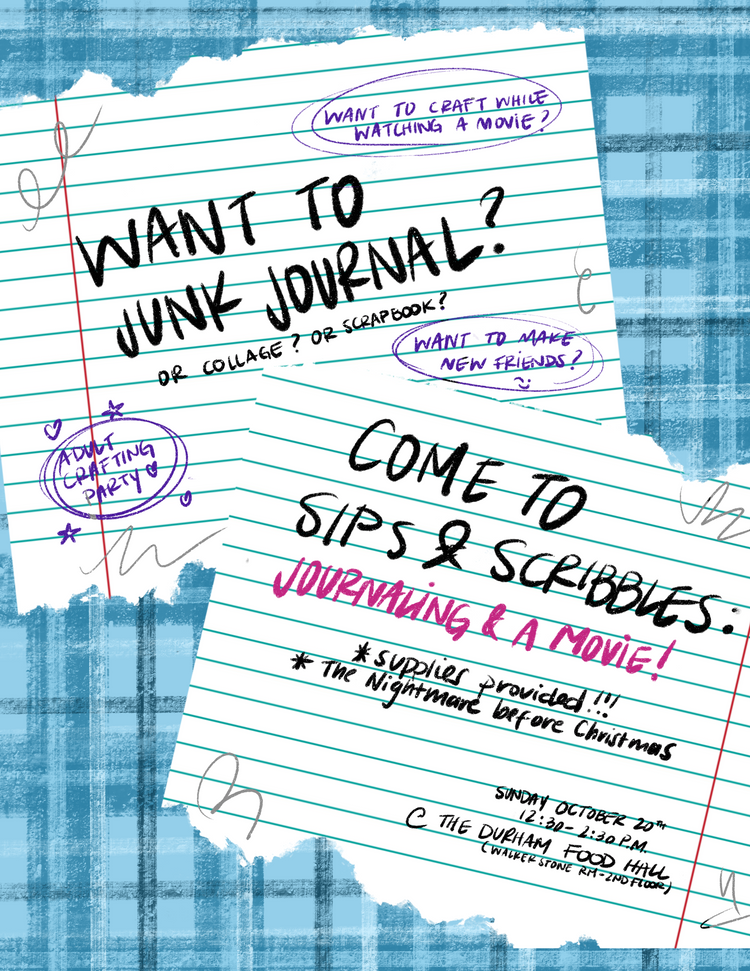 WANT TO CRAFT WHILE
WATCHING A MOVIE?
WANT TO
JUNK JOURNAL?
OR COLLAGE? OR SCRAPBOOK?
WANT TO MAKE
NEW FRIENDS?
ADULT
CRAFTING
PARTY
COME TO
SIPS & SCRIBBLES:
JOURNALING & A MOVIE!
* supplies provided!!!
* The Nightmare before Christmas
SUNDAY OCTOBER 20TH
12:30-2:30 P.M.
@ THE DURHAM FOOD HALL
(WALKER STONE RM-2ND FLOOR)